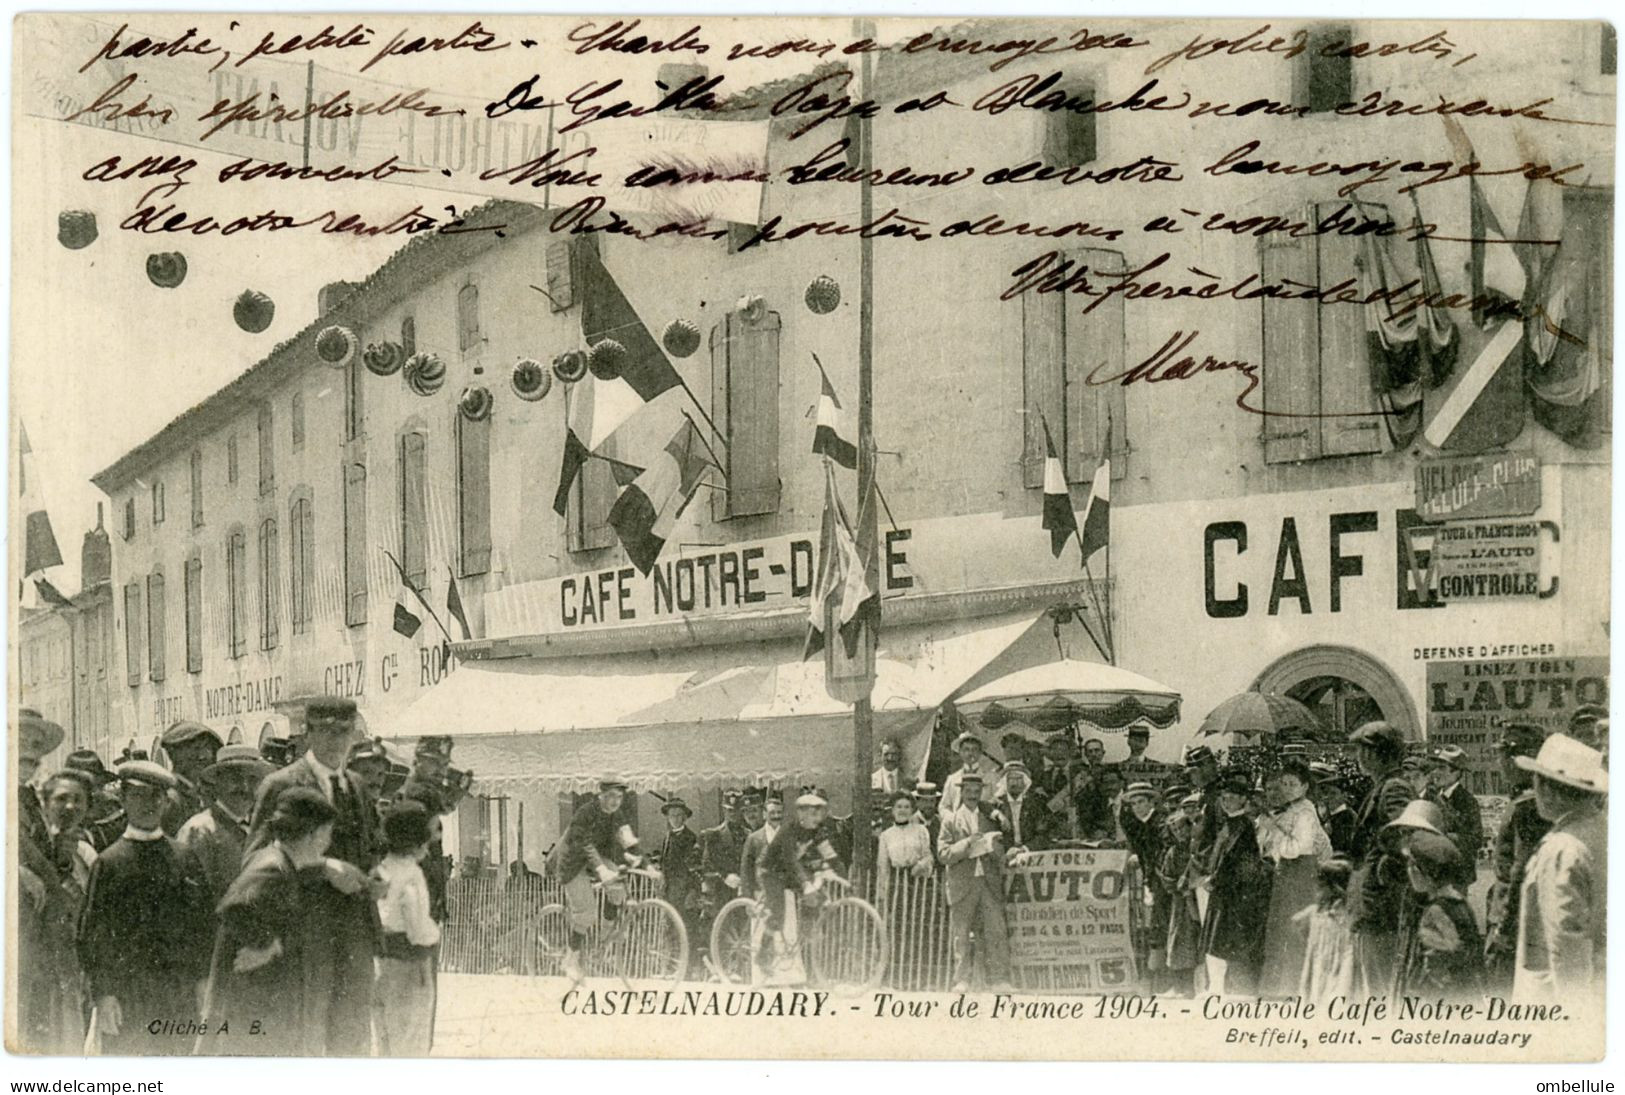 partie, petite partie. Charles nous a envoyé de jolies cartes,
bien spirituelles. De Gaillac Papa et Blanche nous écrivent
assez souvent. Nous sommes heureux de votre bon voyage et
de votre rentrée. Rien de nous à vous trois
Votre frère
CONTROLE VOLANT
CAFE NOTRE-D E
CAFE
VELOCE-CLUB
TOUR de FRANCE 1904
L'AUTO
CONTROLE
DEFENSE D'AFFICHER
LISEZ TOUS
L'AUTO
Journal Quotidien de
PARAISSANT SUR
HOTEL NOTRE-DAME CHEZ Gn RO
LISEZ TOUS
L'AUTO
Quotidien de Sport
SUR 4, 6, 8 & 12 PAGES
PARTOUT 5
CASTELNAUDARY. - Tour de France 1904. - Contrôle Café Notre-Dame.
Cliché A B.
Breffeil, edit. - Castelnaudary
Mar 11 2025 ombellule